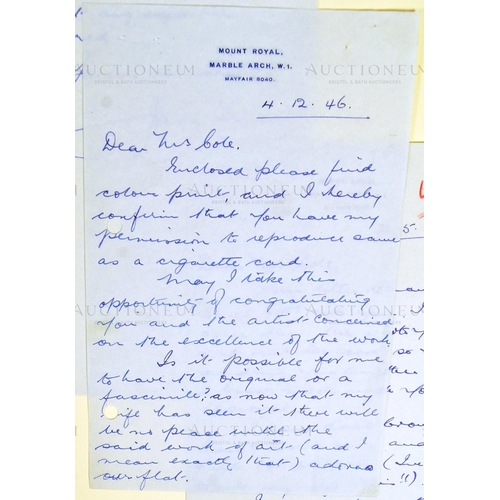 MOUNT ROYAL,
MARBLE ARCH, W.1.
MAYFAIR 8040.
4. 12. 46.
Dear Mrs Cole.
Enclosed please find
colour print, and I hereby
confirm that you have my
permission to reproduce same
as a cigarette card.
May I take this
opportunity of congratulating
you and the artist concerned
on the excellence of the work.
Is it possible for me
to have the original or a
fascimile? as now that my
wife has seen it there will
be no peace until the
said work of art (and I
mean exactly that) adorns
our flat.
AUCTIONEUM
5.
so
brow
and
(I've
!!)